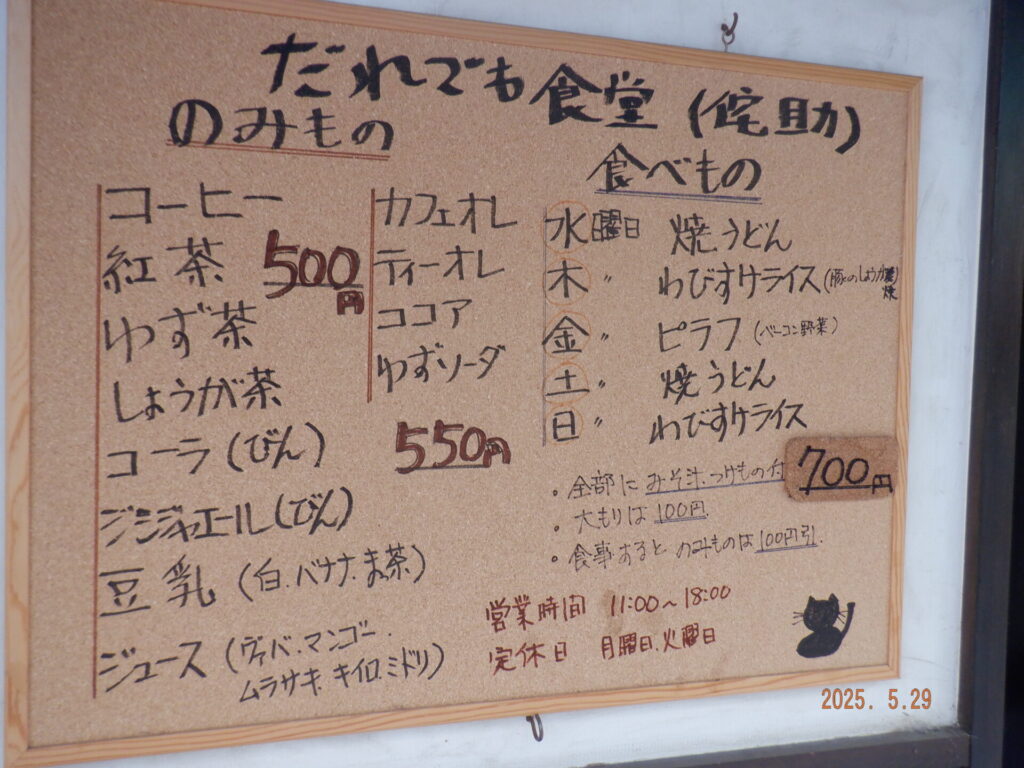 だれでも食堂(侘助)
のみもの
コーヒー
紅茶
ゆず茶
しょうが茶
500円
コーラ(びん)
ジンジャエール(びん)
豆乳(白.バナナ.ま茶)
ジュース(ヴァバ.マンゴー.
ムラサキ.キイロ.ミドリ)
カフェオレ
ティーオレ
ココア
ゆずソーダ
550円
食べもの
水曜日 焼うどん
木 〃 わびすけライス(豚のしょうが焼)
金 〃 ピラフ(ベーコン野菜)
土 〃 焼うどん
日 〃 わびすけライス
700円
・全部にみそ汁.つけもの付
・大もりは100円
・食事するとのみものは100円引.
営業時間 11:00〜18:00
定休日 月曜日.火曜日
2025. 5.29